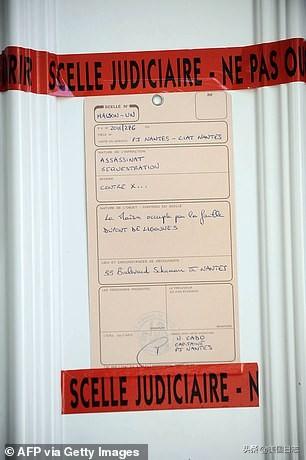 RIR SCELLE JUDICIAIRE - NE PAS OU
SCELLE N°
MAISON-UN
P.V. N° 2011/276
PIECE N°
PJ NANTES - CIAT NANTES
NATURE DE L'INFRACTION
ASSASSINAT
SEQUESTRATION
CONTRE X...
NATURE DE L'OBJET - CONTENU DU SCELLE
La Maison occupée par la famille
DUPONT DE LIGONNES
LIEU ET CIRCONSTANCES DE DECOUVERTE
55 Boulevard Schuman à NANTES
N. CADO
CAPITAINE
PJ NANTES
SCELLE JUDICIAIRE - N
© AFP via Getty Images